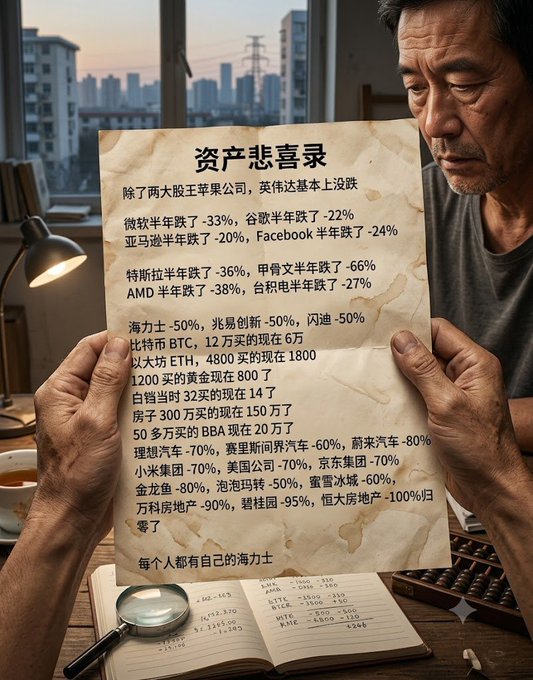 资产悲喜录
除了两大股王苹果公司，英伟达基本上没跌
微软半年跌了 -33%，谷歌半年跌了 -22%
亚马逊半年跌了 -20%，Facebook 半年跌了 -24%
特斯拉半年跌了 -36%，甲骨文半年跌了 -66%
AMD 半年跌了 -38%，台积电半年跌了 -27%
海力士 -50%，兆易创新 -50%，闪迪 -50%
比特币 BTC，12 万买的现在 6万
以大坊 ETH，4800 买的现在 1800
1200 买的黄金现在 800 了
白铛当时 32买的现在 14 了
房子 300 万买的现在 150 万了
50 多万买的 BBA 现在 20 万了
理想汽车 -70%，赛里斯间界汽车 -60%，蔚来汽车 -80%
小米集团 -70%，美国公司 -70%，京东集团 -70%
金龙鱼 -80%，泡泡玛转 -50%，蜜雪冰城 -60%，
万科房地产 -90%，碧桂园 -95%，恒大房地产 -100%归
零了
每个人都有自己的海力士